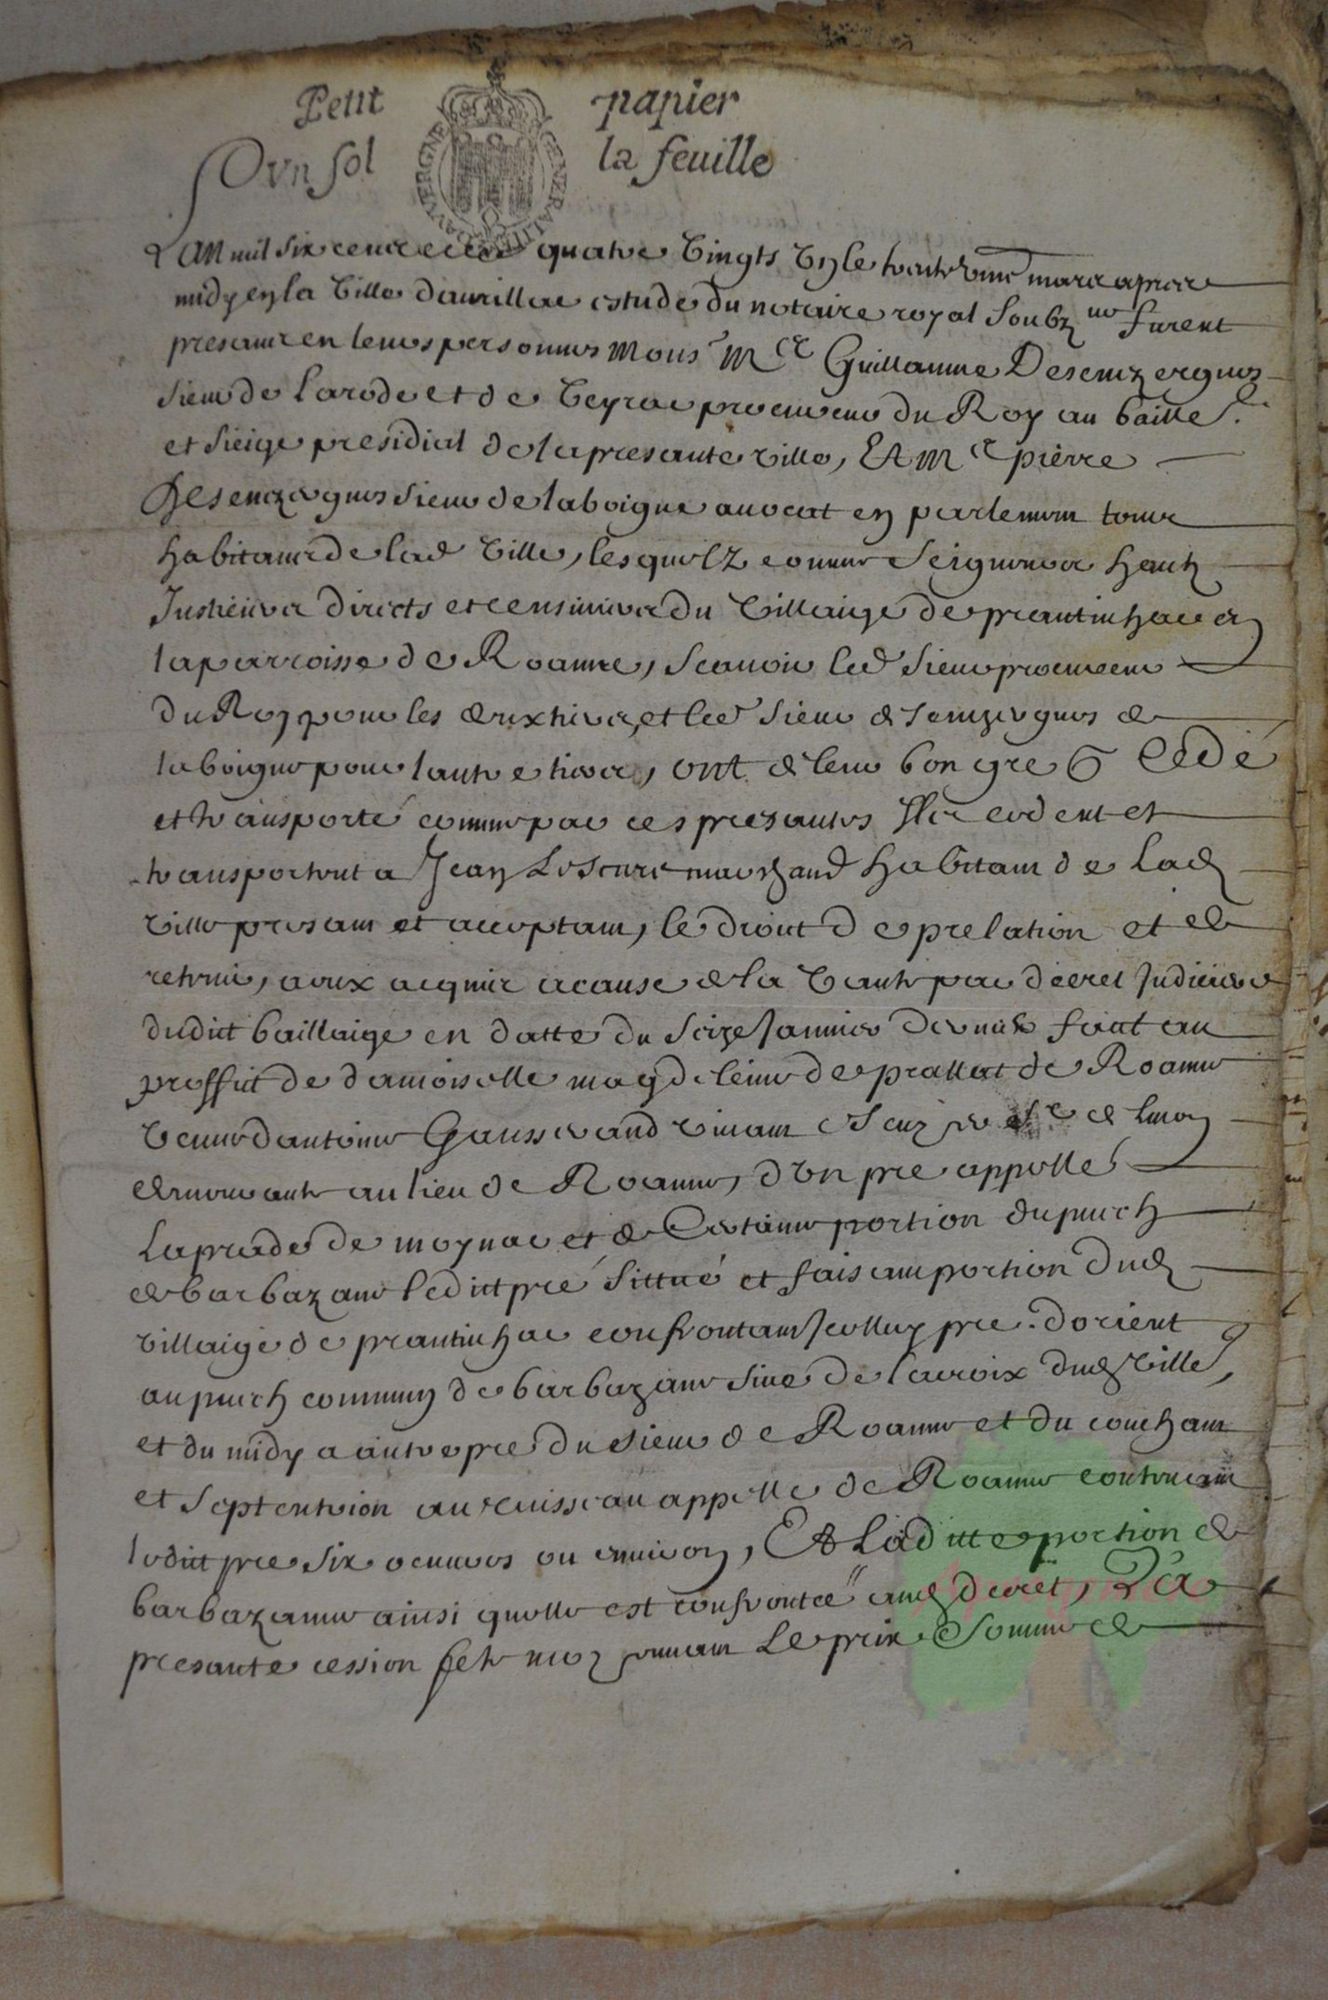 Petit papier
Un sol la feuille
AUVERGNE GENERALITE
L'an mil six cens quatre vingts un le trente unie mars apres
midy en la ville d'aurillac estude du notaire royal soubzne furent
presans en leurs personnes Mons r Me Guillaume Desenzergues
sieur de larode et de Veyrac procureur du Roy au baille
et sieige presidial de la presante ville, Et Me pierre
Desenzergues sieur de laboigue avocat en parlemem tous
habitans de lad ville, lesquelz comme seigneurs hautz
Justiciers directs et censiviers du villaige de prantinhac en
la parroisse de Roanne, scavoir led sieur procureur
du Roy pour les deux tiers, et led sieur desenzergues de
laboigue pour lautre tiers, ont de leur bon gre cedé
et transporté comme par ces presantes Ilz cedent et
transportent a Jean Lescure marchand habitant de lad
ville presant et acceptant, le droict de prelation et de
retenue, a eux acquis a cause de la vante par decret Judiciere
dudit bailliaige en datte du seize Janvier dernier faict au
proffit de damoiselle magdeleine de prallat de Roanne
veuve d'antoine Gausserand vivant
demurante au lieu de Roanne, d'un pre appelle
Laprade de moynac et de certaine portion du puech
de barbazane ledit pré sittué et faisant portion dud
villaige de prantinhac confrontant Icelluy pre d'orient
au puech commun de barbazane sive de lacroix dud ville,
et du midy a autre pre du sieur de Roanne et du couchant
et septentrion au ruisseau appelle de Roanne contenant
ledit pre six oeuvres ou environ, Et ladite portion de
barbazane ainsi quelle est confrontée aud decret, La
presante cession fete moyennant le prix et somme de